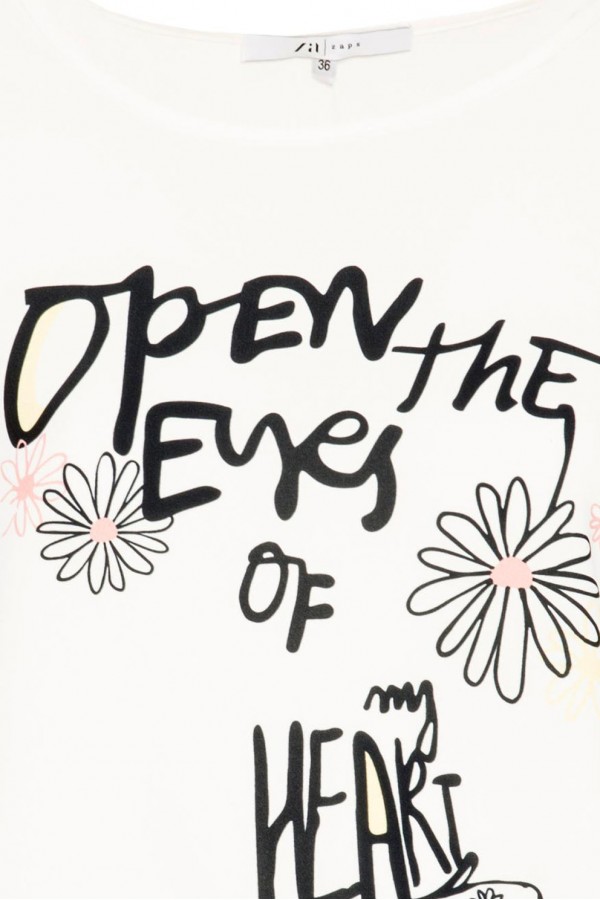 zaps
36
OPEN
thE
Eyes
OF
my
HEART